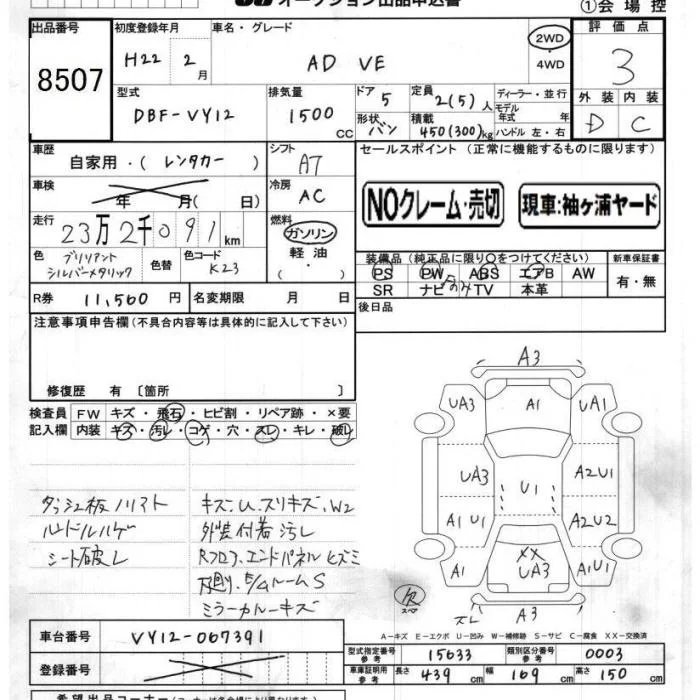 オークション出品申込書
①会場控
出品番号
8507
初度登録年月
H22 2月
車名・グレード
AD VE
2WD
・
4WD
評価点
3
外装 内装
D C
型式
DBF-VY12
排気量
1500 cc
ドア
5
形状
バン
定員
2(5)人
積載
450(300)kg
ディーラー・並行
モデル年式 年
ハンドル 左・右
車歴
自家用・(レンタカー)
シフト
AT
車検
年 月( 日)
冷房
AC
走行
23万2千091km
燃料
ガソリン
軽油
( ・ )
色
ブリリアントシルバーメタリック
色替
色コード
K23
R券 11,560円
名変期限 月 日
セールスポイント(正常に機能するものに限ります)
NOクレーム・売切
現車:袖ヶ浦ヤード
装備品(純正品に限り○をつけてください)
PS PW ABS エアB AW
SR ナビ TV 本革
新車保証書
有・無
後日品
注意事項申告欄(不具合内容等は具体的に記入して下さい)
修復歴 有〔箇所 〕
検査員記入欄
FW キズ・飛石・ヒビ割・リペア跡・×要
内装 キズ・汚レ・コゲ・穴・スレ・キレ・破レ
ダッシュ板ノリアト
シート破レ
キズ、U、スリキズ、W2
外装付着汚レ
Rフロア、エンドパネルヒズミ
ルームS
ミラーカバーキズ
A3
UA3 A1 UA1
UA3 U1 A2U1
A1U1 A2U2
XX
A1 UA3 A1U1
欠
スペア
スレ A3
A-キズ E-エクボ U-凹み W-補修跡 S-サビ C-腐食 XX-交換済
車台番号
VY12-067391
登録番号
型式指定番号
参考
15633
類別区分番号
参考
0003
車庫証明用
参考
長さ 439 cm 幅 169 cm 高さ 150 cm
希望出品コーナー